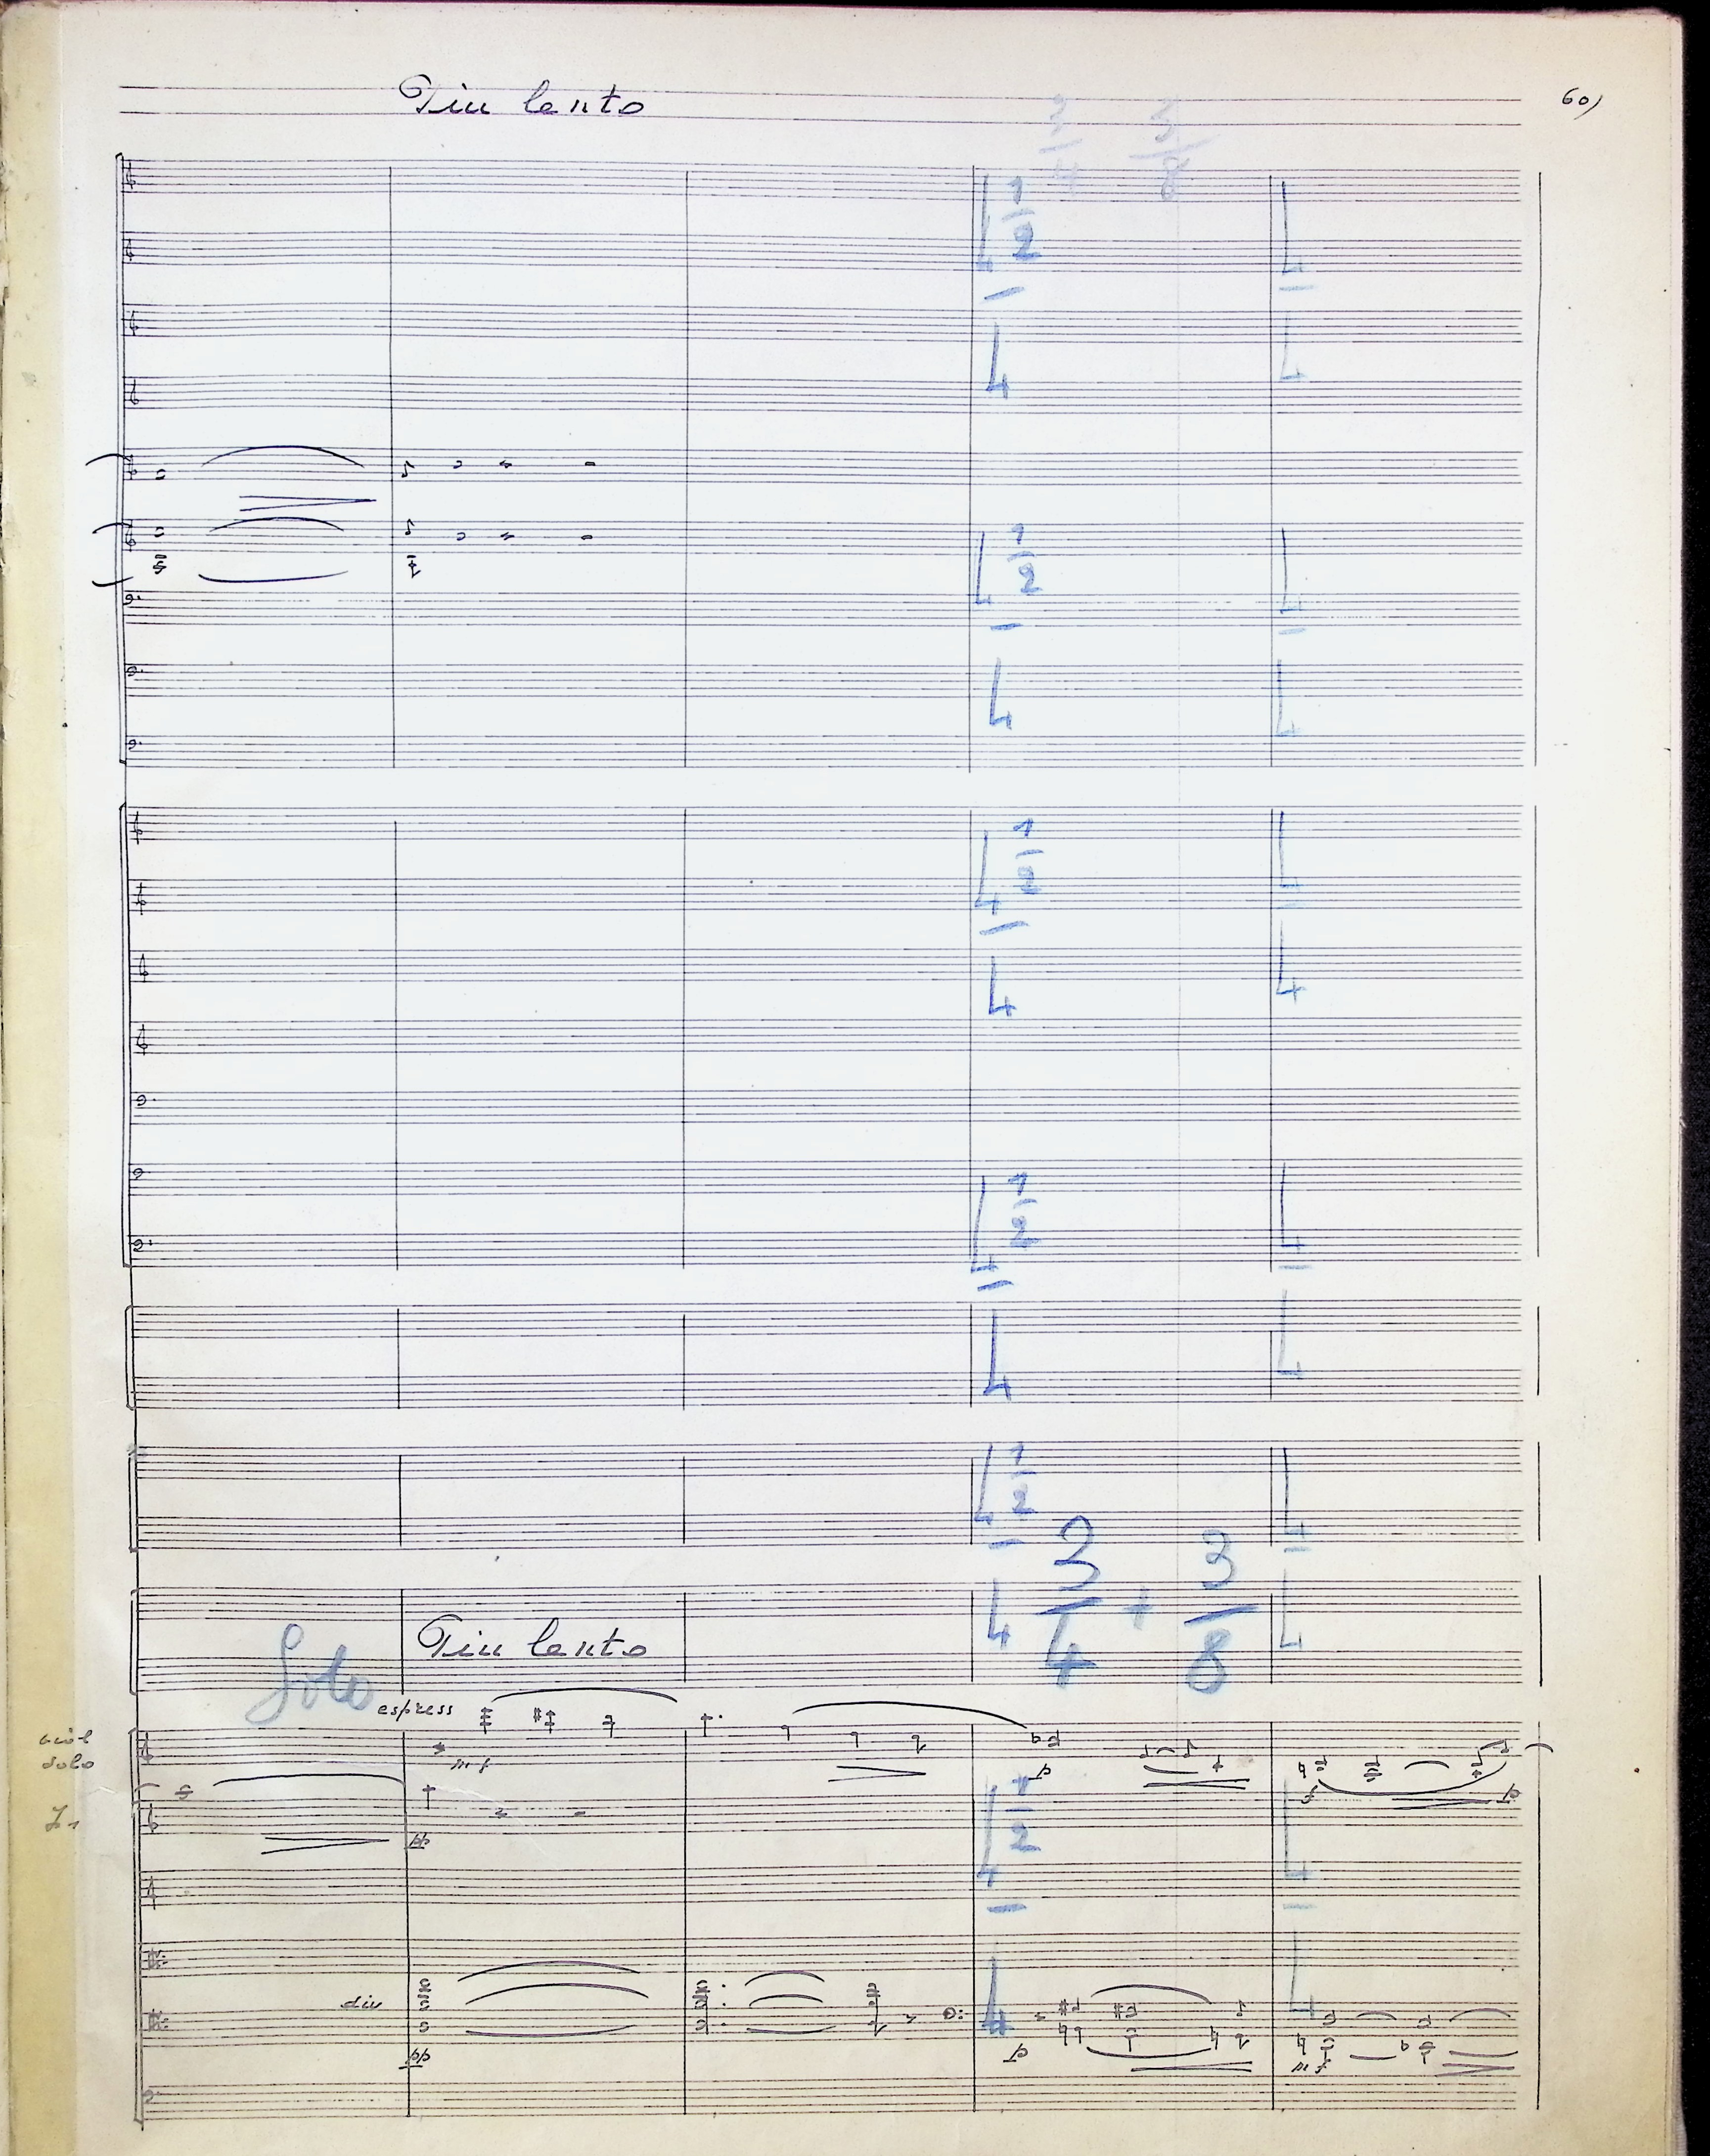 Piu lento
60)
3/4 3/8
4 1/2 4
4 4
4 1/2 4
4 4
4 1/2 4
4 4
4 1/2 4
4 4
4 1/2 4
3/4 + 3/8
4 4
Solo
Piu lento
espress
viol
solo
mf
f
p
pp
4 1/2 4
div
4 4
pp
p
mf